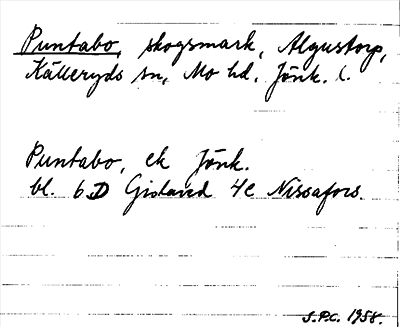 Puntabo, skogsmark, Algustorp,
Källeryds sn, Mo hd, Jönk. l.
Puntabo, ek Jönk.
bl. 6 D Gislaved 4e Nissafors.
S.P.C. 1958.